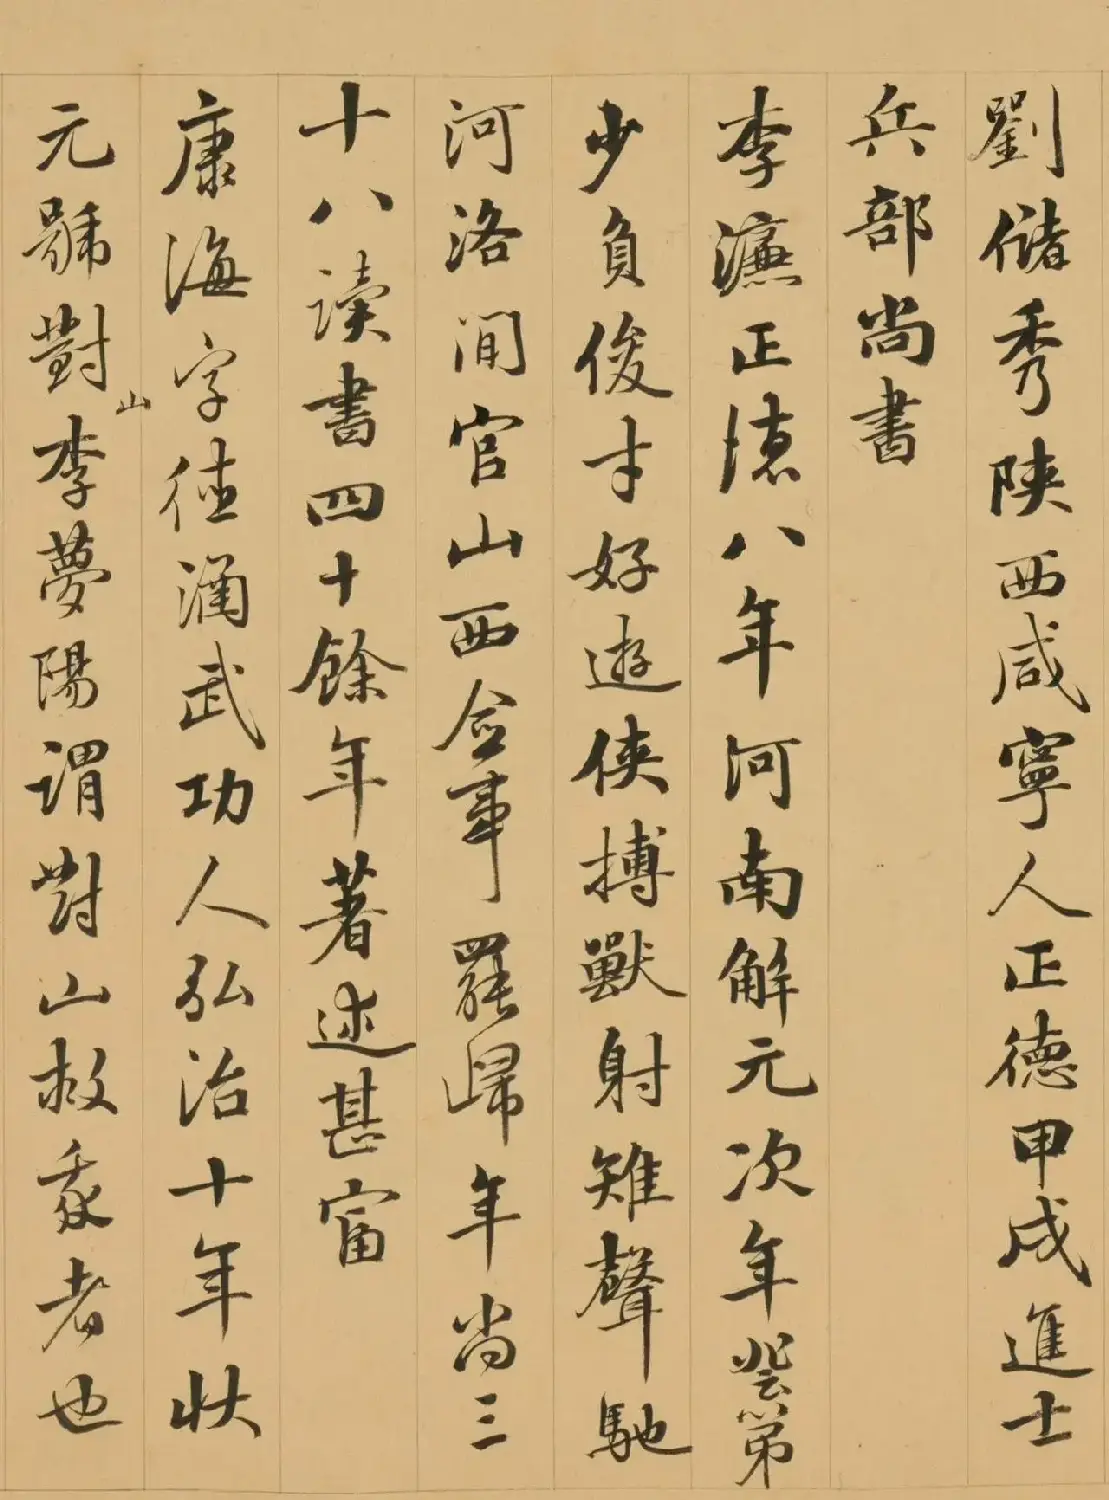 劉儲秀陝西咸寧人正德甲戌進士
兵部尚書
李濂正德八年河南解元次年登第
少負俊才好遊俠搏獸射雉聲馳
河洛間官山西僉事罷歸年尚三
十八读書四十餘年著述甚富
康海字德涵武功人弘治十年狀
元號對山李夢陽謂對山救我者也